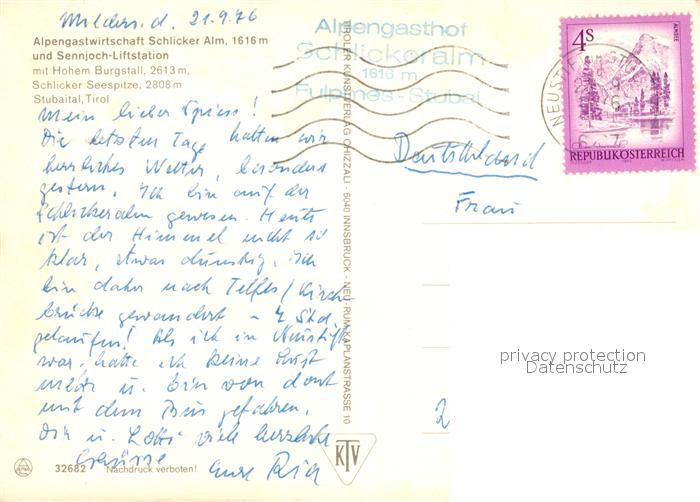 Mieders, d. 21.9.76
Alpengastwirtschaft Schlicker Alm, 1616 m
und Sennjoch-Liftstation
mit Hohem Burgstall, 2613 m,
Schlicker Seespitze, 2808 m
Stubaital, Tirol
Mein lieber
Die letzten Tage hatten wir
herrliches Wetter, besonders
gestern. Ich bin auf der
Schlickeralm gewesen. Heute
ist der Himmel nicht so
klar, etwas dunstig. Ich
bin daher nach Telfes/Kirch-
brücke gewandert - 4 Std.
gelaufen! Als ich in Neustift
war, hatte ich keine Lust
mehr u. bin von dort
mit dem Bus gefahren.
Dir u. Lotti viele herzliche
Grüsse Eure
32682 Nachdruck verboten!
TIROLER KUNSTVERLAG CHIZZALI · 6040 INNSBRUCK - NEU RUM KAPLANSTRASSE 10
KTV
Alpengasthof
Schlickeralm
1616 m
Fulpmes - Stubai
4S
ALMSEE
REPUBLIK ÖSTERREICH
NEUSTIFT
Deutschland
Frau
privacy protection
Datenschutz